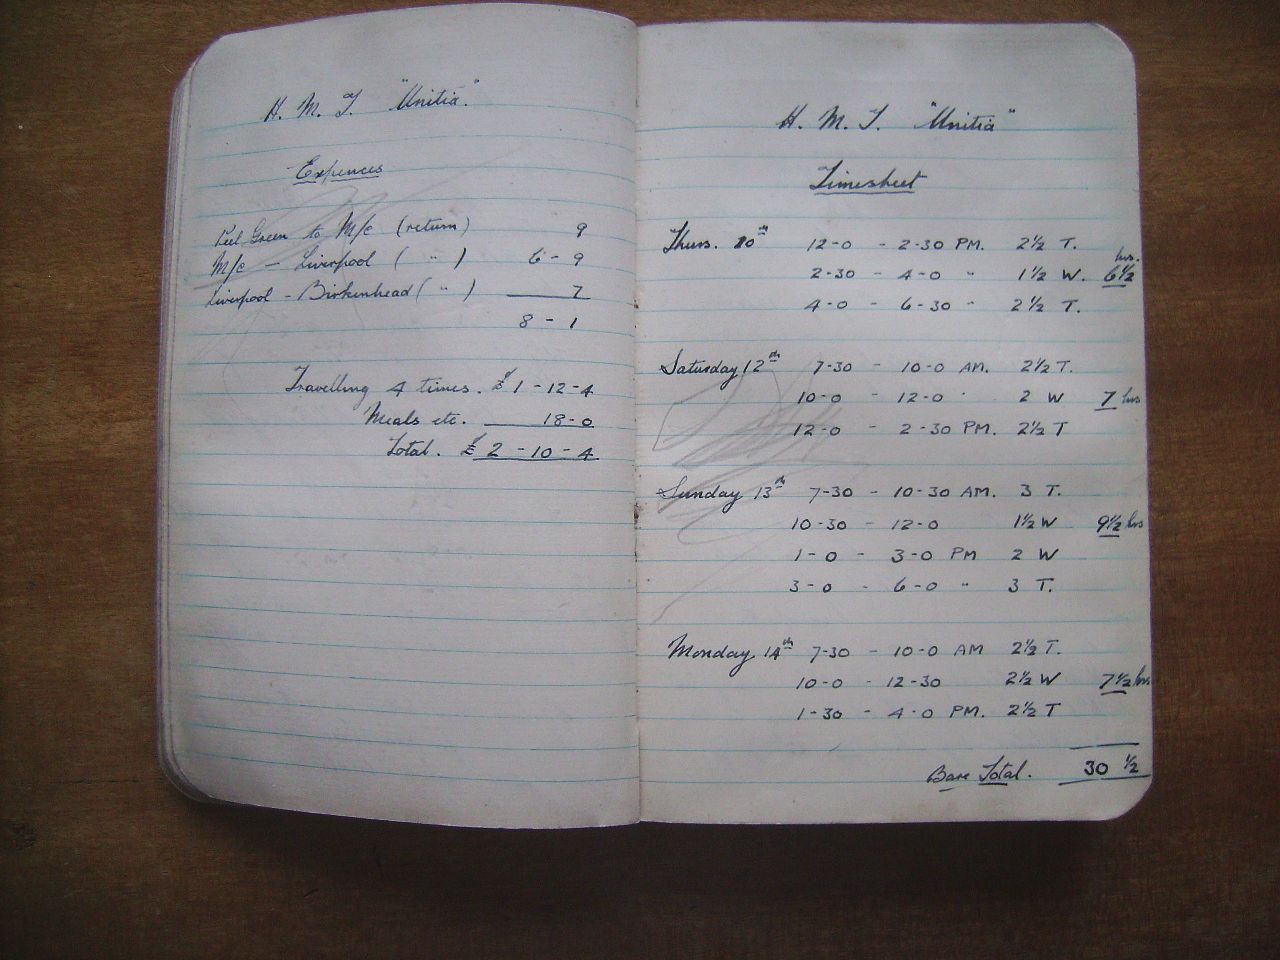 H. M. T. "Unitia."
Expences
Peel Green to M/c (return) 9
M/c - Liverpool ( " ) 6 - 9
Liverpool - Birkenhead ( " ) 7
8 - 1
Travelling 4 times. £ 1 - 12 - 4
Meals etc. 18 - 0
Total. £ 2 - 10 - 4
H. M. T. "Unitia"
Timesheet
Thurs. 10th 12-0 - 2-30 PM. 2½ T.
2-30 - 4-0 " 1½ W. 6½ hrs.
4-0 - 6-30 " 2½ T.
Saturday 12th 7-30 - 10-0 AM. 2½ T.
10-0 - 12-0 " 2 W 7 hrs
12-0 - 2-30 PM. 2½ T
Sunday 13th 7-30 - 10-30 AM. 3 T.
10-30 - 12-0 1½ W 9½ hrs
1-0 - 3-0 PM 2 W
3-0 - 6-0 " 3 T.
Monday 14th 7-30 - 10-0 AM 2½ T.
10-0 - 12-30 2½ W 7½ hrs
1-30 - 4-0 PM. 2½ T
Bare Total. 30 ½